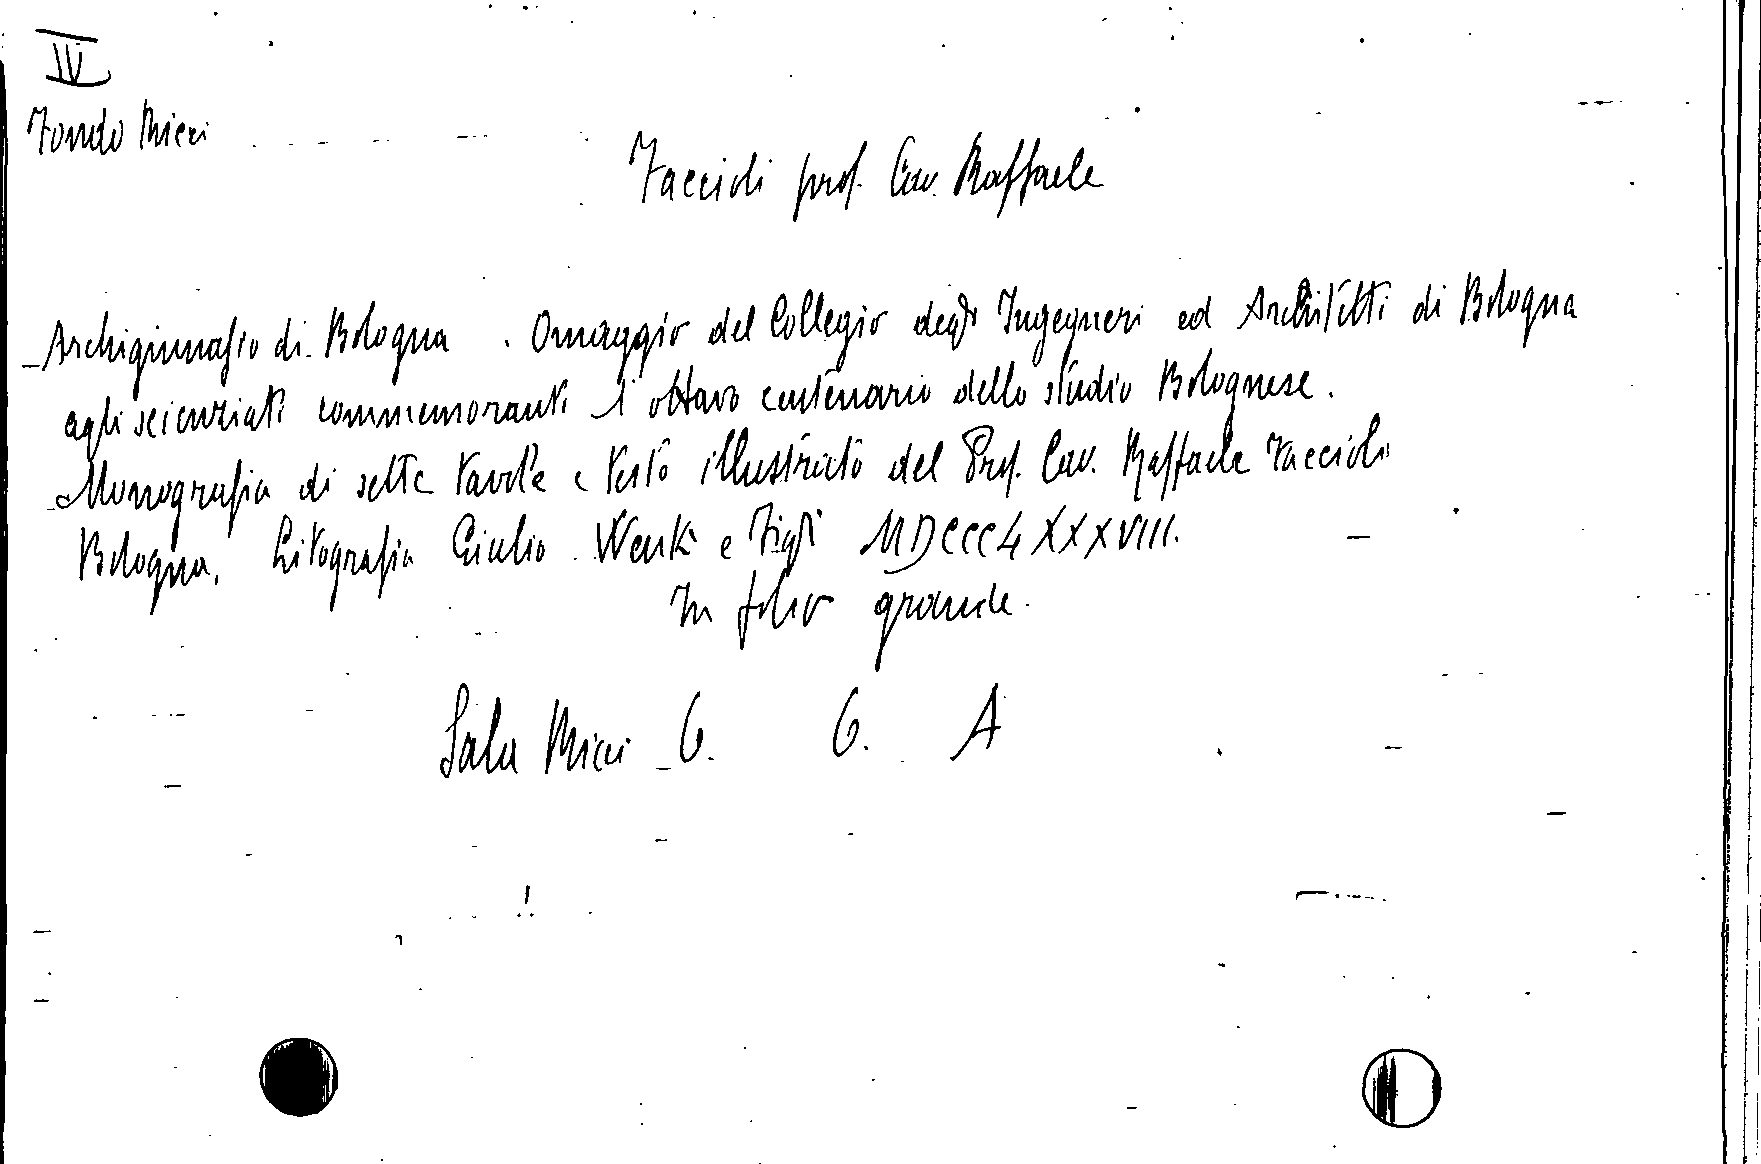 IV
Fondo Ricci
Faccioli prof. Cav. Raffaele
Archiginnasio di Bologna. Omaggio del Collegio degli Ingegneri ed Architetti di Bologna
agli scienziati commemoranti l'ottavo centenario dello studio Bolognese.
Monografia di sette tavole e testo illustrato del Prof. Cav. Raffaele Faccioli
Bologna. Litografia Giulio Wenk e Figli MDCCCLXXXVIII.
In folio grande.
Sala Ricci 6. 6. A